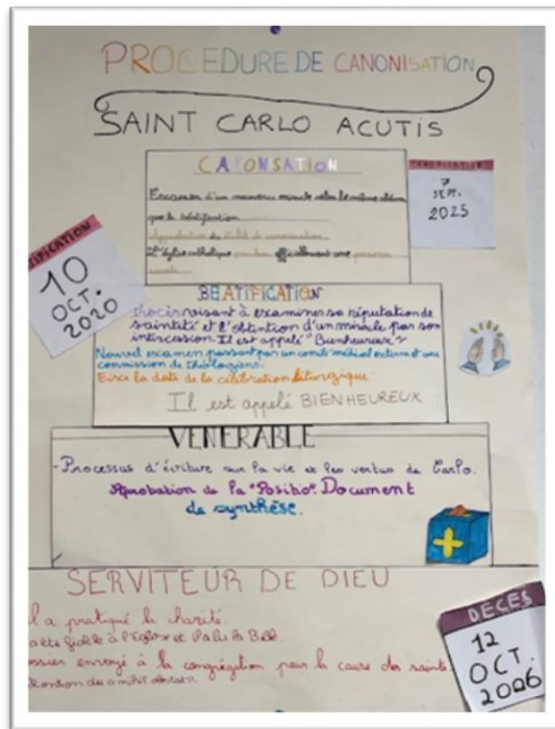 PROCEDURE DE CANONISATION
SAINT CARLO ACUTIS
CANONSATION
d'un nouveau miracle selon le même
que la béatification
L'Église catholique officiellement une personne
7
SEPT.
2025
10
OCT.
2020
BEATIFICATION
Procès visant à examiner sa réputation de
sainteté et l'obtention d'un miracle par son
intercession. Il est appelé "Bienheureux"
Nouvel examen passant par un comité médial externe et une
commission de théologiens.
Fixer la date de la célébration liturgique
Il est appelé BIENHEUREUX
VENERABLE
-Processus d'écriture sur la vie et les vertus de Carlo.
Aprobation de la "Positio". Document
de synthèse.
SERVITEUR DE DIEU
a pratiqué la charité.
fidèle à l'Église et
envoyé à la congrégation pour la cause des saints
DECES
12
OCT.
2006